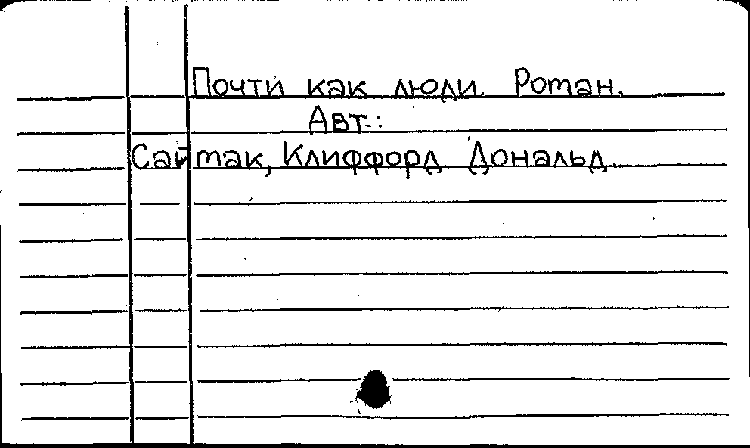 Почти как люди. Роман.
Авт.:
Саймак, Клиффорд Дональд.